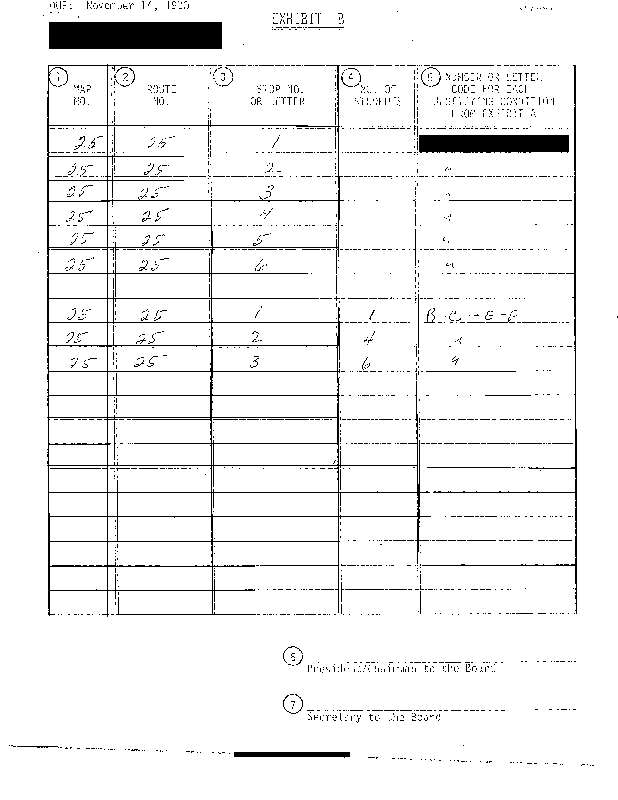 DUE: November 14, 1980
EXHIBIT B
1 2 3 4 5
MAP NO. ROUTE NO. STOP NO. OR LETTER NO. OF STUDENTS NUMBER OR LETTER CODE FOR EACH QUALIFYING CONDITION FROM EXHIBIT A
25 25 1
25 25 2 "
25 25 3 "
25 25 4 "
25 25 5 "
25 25 6 "
25 25 1 1 B-C-E-E
25 25 2 4 "
25 25 3 6 "
6
President/Chairman to the Board
7
Secretary to the Board